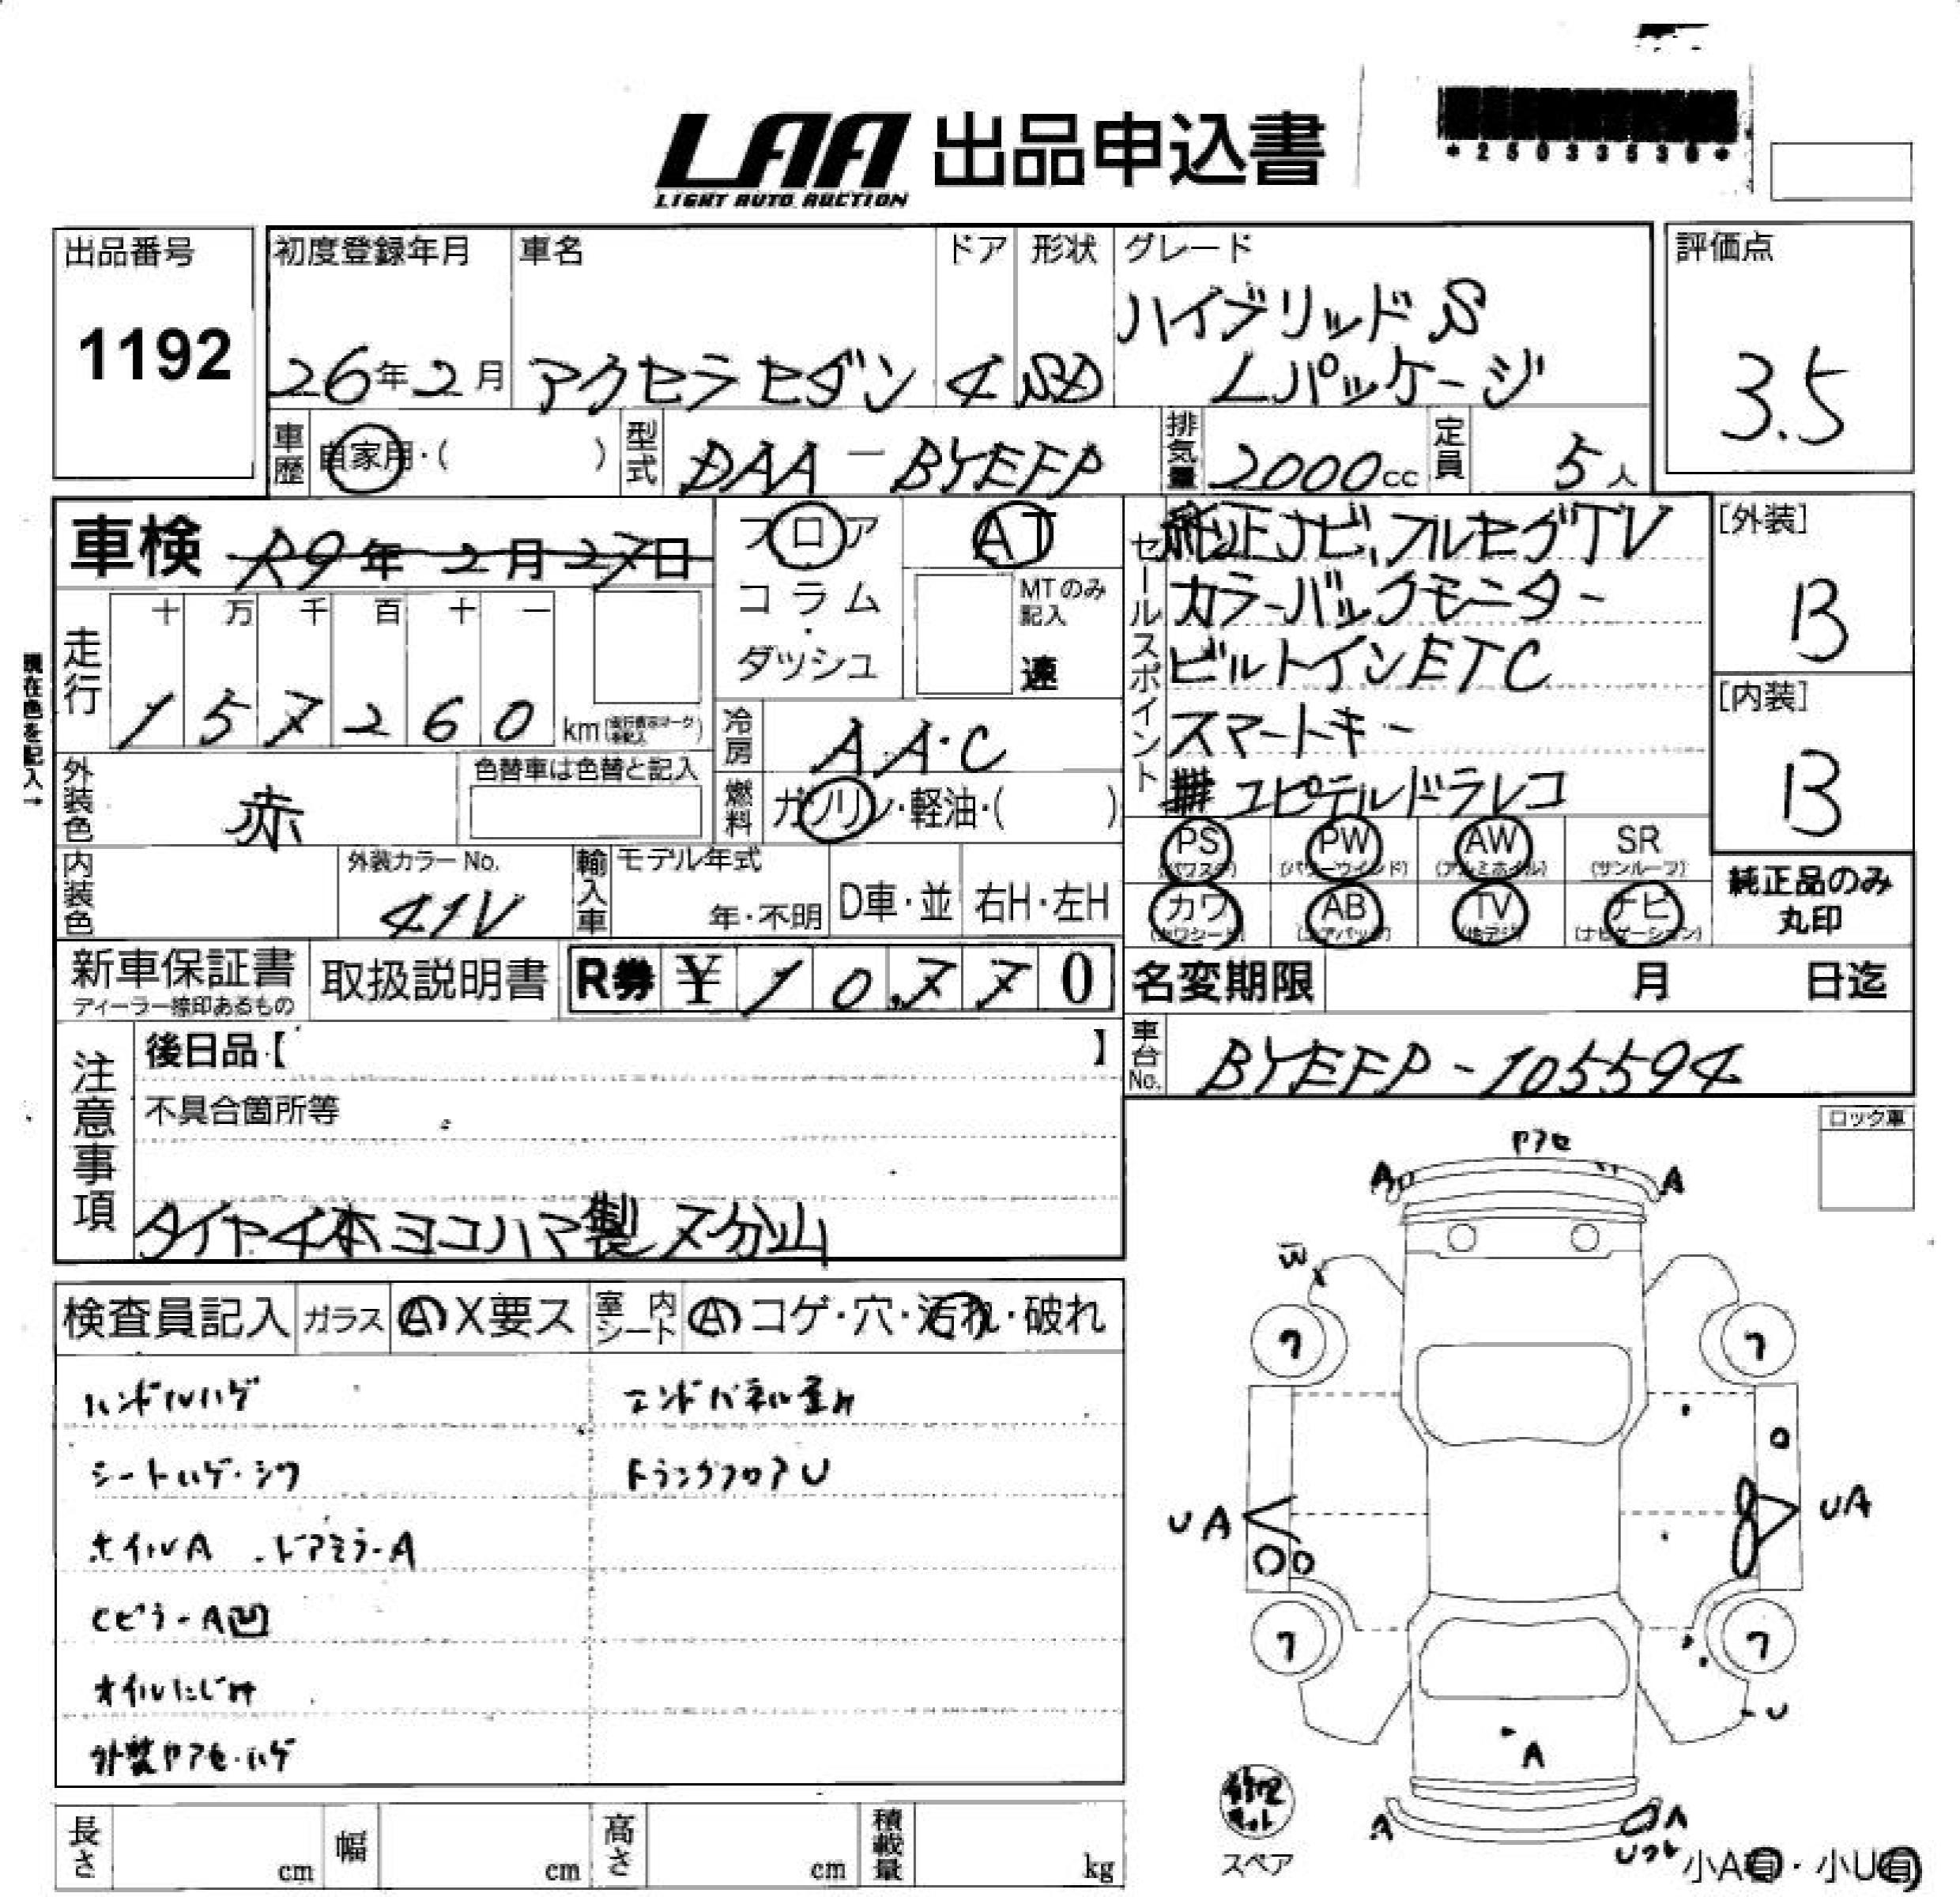 LAA 出品申込書
LIGHT AUTO AUCTION
*25033536*
出品番号
1192
初度登録年月
26年2月
車名
アクセラセダン
ドア
4
形状
SD
グレード
ハイブリッドS
Lパッケージ
評価点
3.5
車歴
自家用・( )
型式
DAA-BYEFP
排気量
2000cc
定員
5人
車検 R9年2月27日
フロア
コラム
・
ダッシュ
AT
MTのみ
記入
速
セールスポイント
純正ナビ、フルセグTV
カラーバックモニター
ビルトインETC
スマートキー
ユピテルドラレコ
[外装]
B
[内装]
B
現在色を記入→
走行
十 万 千 百 十 一
1 5 7 2 6 0 km
冷房
AAC
外装色
赤
色替車は色替と記入
燃料
ガソリン・軽油・( )
内装色
外装カラーNo.
41V
輸入車
モデル年式
年・不明
D車・並
右H・左H
PS
(パワステ)
PW
(パワーウインド)
AW
(アルミホイル)
SR
(サンルーフ)
カワ
(カワシート)
AB
(エアバック)
TV
(地デジ)
ナビ
(ナビゲーション)
純正品のみ
丸印
新車保証書
ディーラー捺印あるもの
取扱説明書
R券 ¥10,770
名変期限 月 日迄
車台No.
BYEFP-105594
注意事項
後日品【 】
不具合箇所等
タイヤ4本ヨコハマ製ヌ分山
ロック車
検査員記入
ガラス
A X要ス
室内シート
A コゲ・穴・汚れ・破れ
ハンドルハゲ
シートハゲ・シワ
ホイルA ・ドアミラーA
CピラーA凹
オイルにじみ
外装ヤアセ・ハゲ
エンドパネル歪み
トランクフロアU
ヤアセ
A
A
W
7
7
UA
UA
7
7
U
A
A
A
修理キット
スペア
小A有・小U有
長さ
cm
幅
cm
高さ
cm
積載量
kg